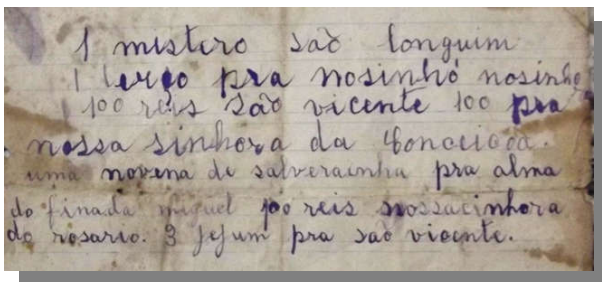 1 mistero são longuim
1 terço pra nosinhó nosinho
100 reis são vicente 100 pra
nossa sinhora da Conocioda.
uma novena de salverainha pra alma
do finada miguel 100 reis nossacinhora
do rosario. 3 jejum pra são vicente.